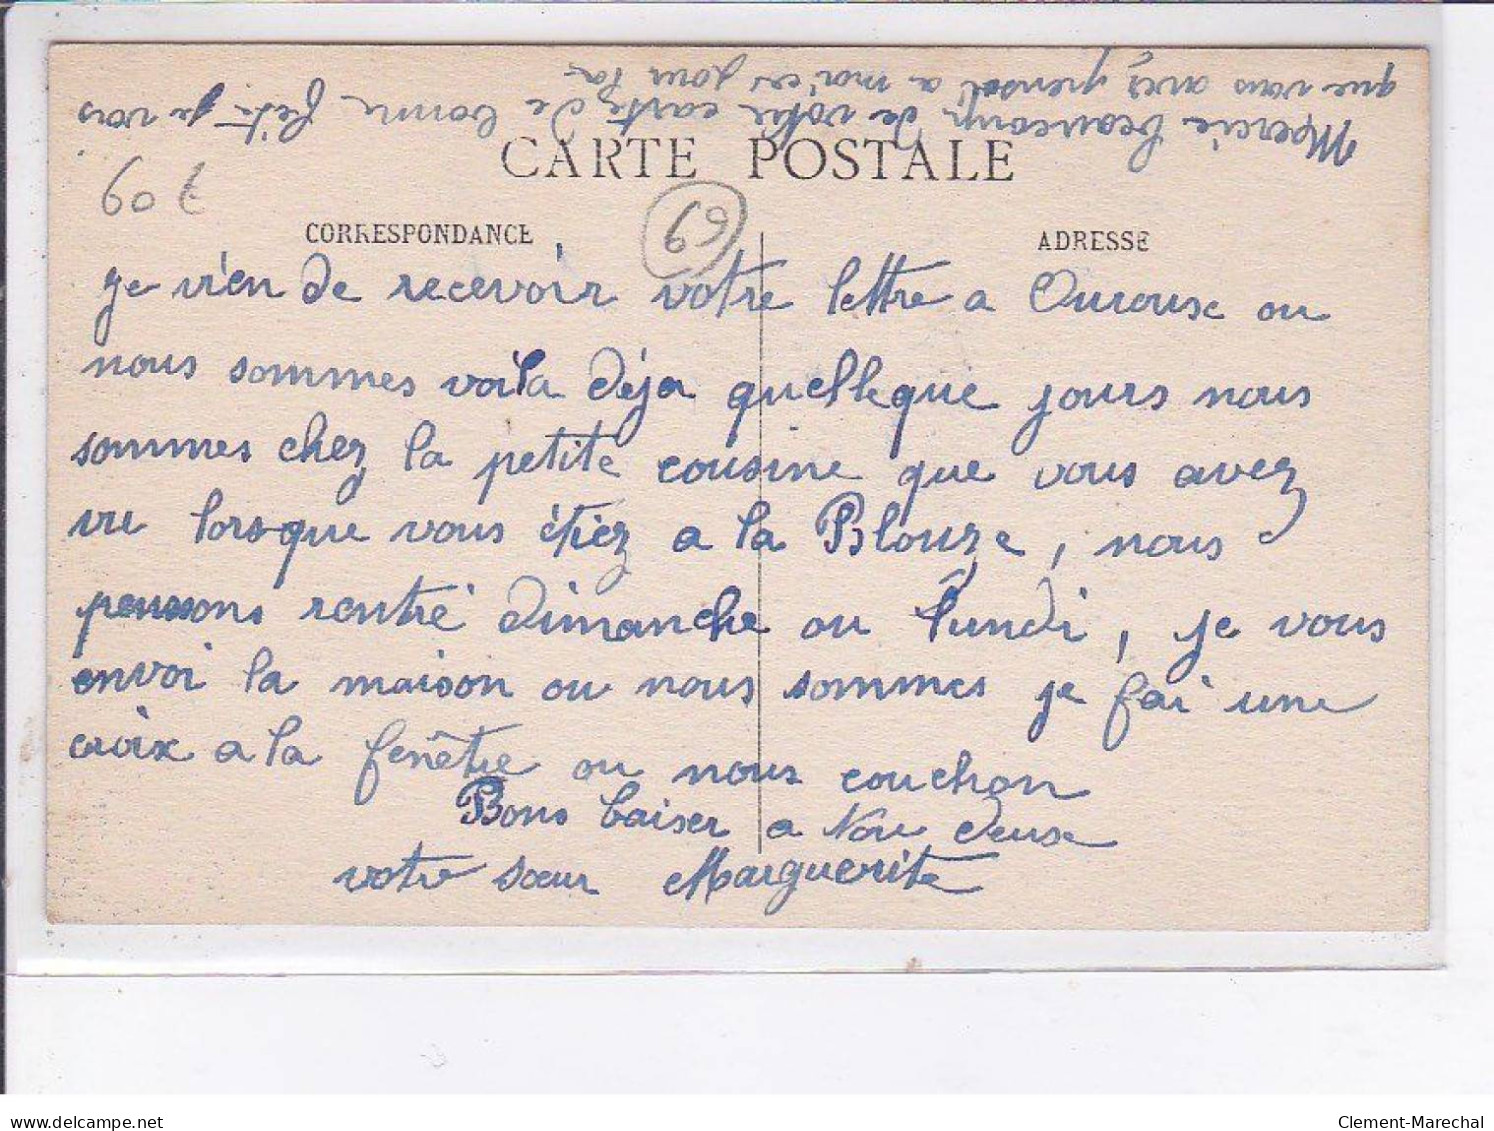 CARTE POSTALE
60 €
69
CORRESPONDANCE
ADRESSE
je vien de recevoir votre lettre a Ouroux ou
nous sommes voila déja quelleque jours nous
sommes chez la petite cousine que vous avez
vu lorsque vous étiez a la Blouze, nous
penssons rentré dimanche ou lundi, je vous
envoi la maison ou nous sommes je fai une
croix a la fenêtre ou nous couchon
Bons baiser a vou deuse
votre sœur Marguerite
Mercie beaucoup de votre carte de bonne fête je vois
que vous avez pensé a moi ces jour la
Clement-Marechal
www.delcampe.net